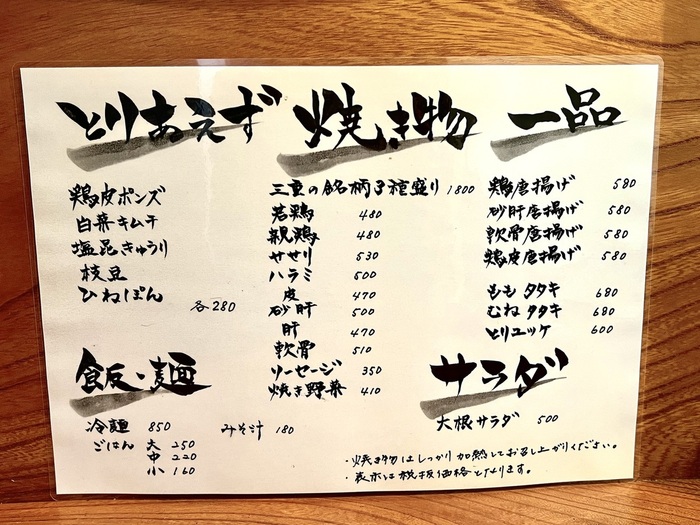 とりあえず
鶏皮ポンズ
白菜キムチ
塩昆きゅうり
枝豆
ひねぽん
各280
飯・麺
冷麺 850
ごはん 大 250
中 220
小 160
みそ汁 180
焼き物
三重の銘柄3種盛り 1800
若鶏 480
親鶏 480
せせり 530
ハラミ 500
皮 470
砂肝 500
肝 470
軟骨 510
ソーセージ 350
焼き野菜 410
一品
鶏唐揚げ 580
砂肝唐揚げ 580
軟骨唐揚げ 580
鶏皮唐揚げ 580
もも タタキ 680
むね タタキ 680
とりユッケ 600
サラダ
大根サラダ 500
・焼き物はしっかり加熱してお召し上がりください。
・表示は税抜価格となります。